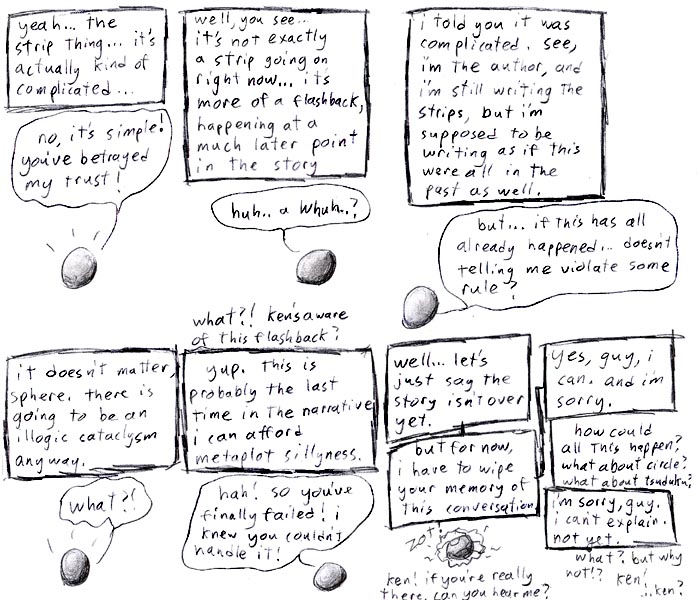 yeah... the
strip thing... it's
actually kind of
complicated...
no, it's simple!
you've betrayed
my trust!
well, you see...
it's not exactly
a strip going on
right now... its
more of a flashback,
happening at a
much later point
in the story
huh.. a whuh..?
i told you it was
complicated. see,
i'm the author, and
i'm still writing the
strips, but i'm
supposed to be
writing as if this
were all in the
past as well.
but... if this has all
already happened... doesn't
telling me violate some
rule?
it doesn't matter,
sphere. there is
going to be an
illogic cataclysm
anyway.
what?!
what?! ken's aware
of this flashback?
yup. this is
probably the last
time in the narrative
i can afford
metaplot sillyness.
hah! so you've
finally failed! i
knew you couldn't
handle it!
well... let's
just say the
story isn't over
yet.
but for now,
i have to wipe
your memory of
this conversation
zot!
ken! if you're really
there, can you hear me?
yes, guy, i
can. and i'm
sorry.
how could
all this happen?
what about circle?
what about tsuduku?
i'm sorry, guy.
i can't explain.
not yet.
what? but why
not!?
ken!
...ken?